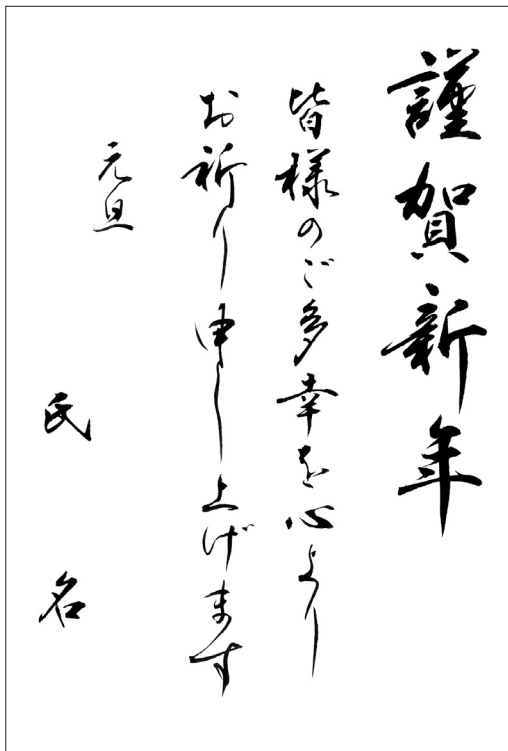 謹賀新年
皆様のご多幸を心より
お祈り申し上げます
元旦
氏名